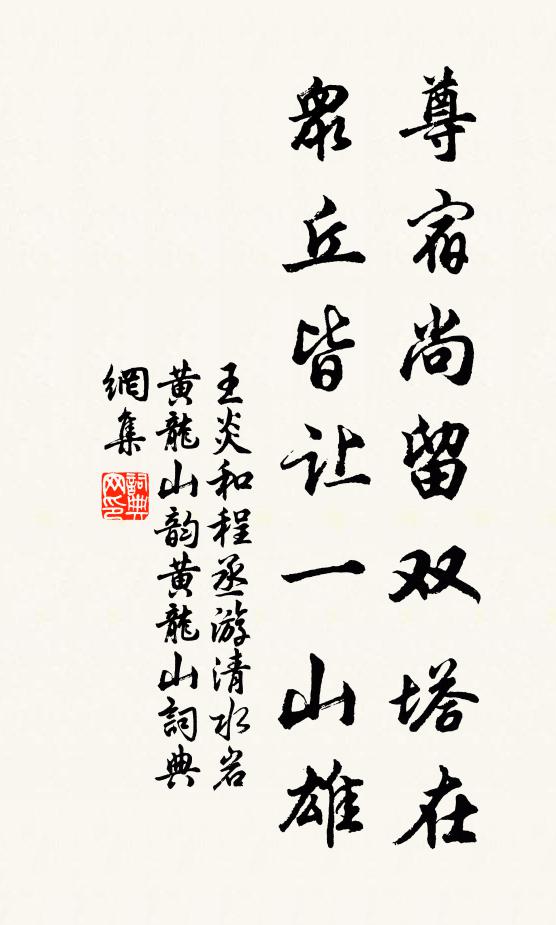 尊宿尚留双塔在
眾丘皆让一山雄
王炎和程丞游清水岩
黄龍山韵黄龍山詞典
網集
詞典
网印